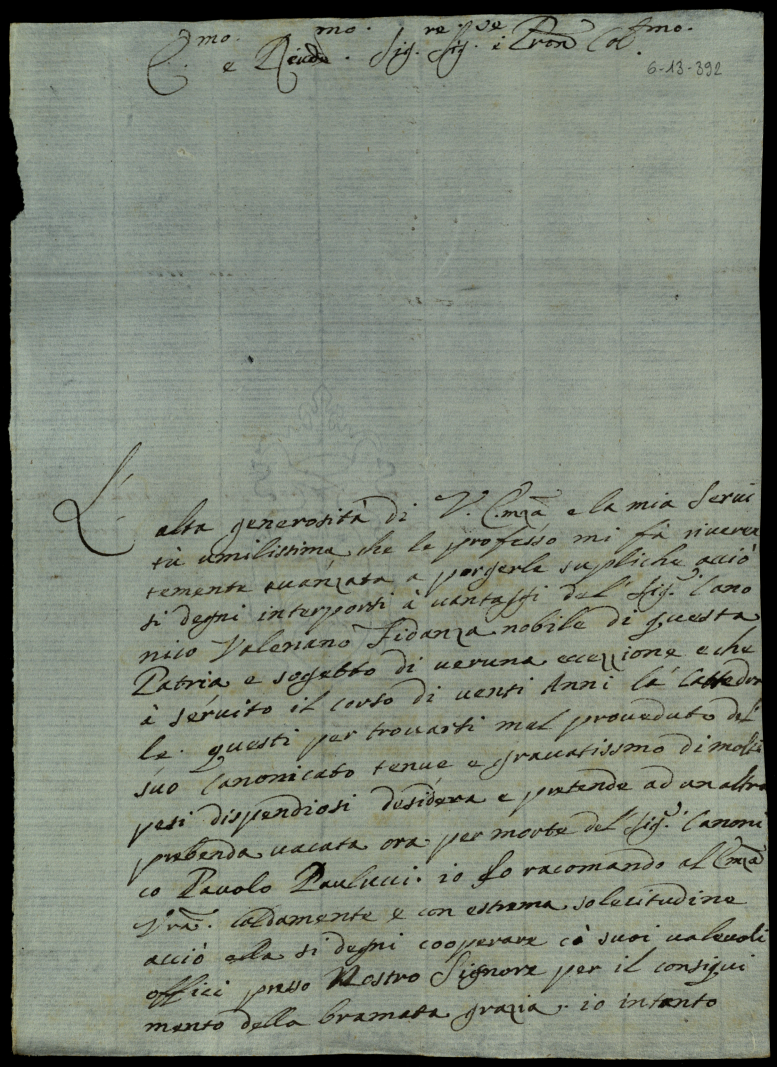 Emo. e Reudmo. Sig.re Sig.re e Pron Colmo.
6-13-392
L'alta generosità di V. Emza e la mia Servi
tù umilissima che le professo mi fà riveren
temente avanzata a porgerle supliche acciò
si degni interporsi à vantaggi del Sig.r Cano
nico Valeriano Fidanza nobile di questa
Patria e sogetto di veruna eccezzione e che
à servito il corso di venti Anni la Cattedra
le. questi per trovarsi mal proveduto del
suo Canonicato tenue e gravatissmo di molti
pesi dispendiosi desidera e pretende ad un altra
prebenda vacata ora per morte del Sig.r Canoni
co Pauolo Paulucci. io lo racomando all Emza
Vra. caldamente e con estrema solecitudine
acciò ella si degni cooperare cò suoi valevoli
offici presso Nostro Signore per il consigui
mento della bramata grazia. io intanto